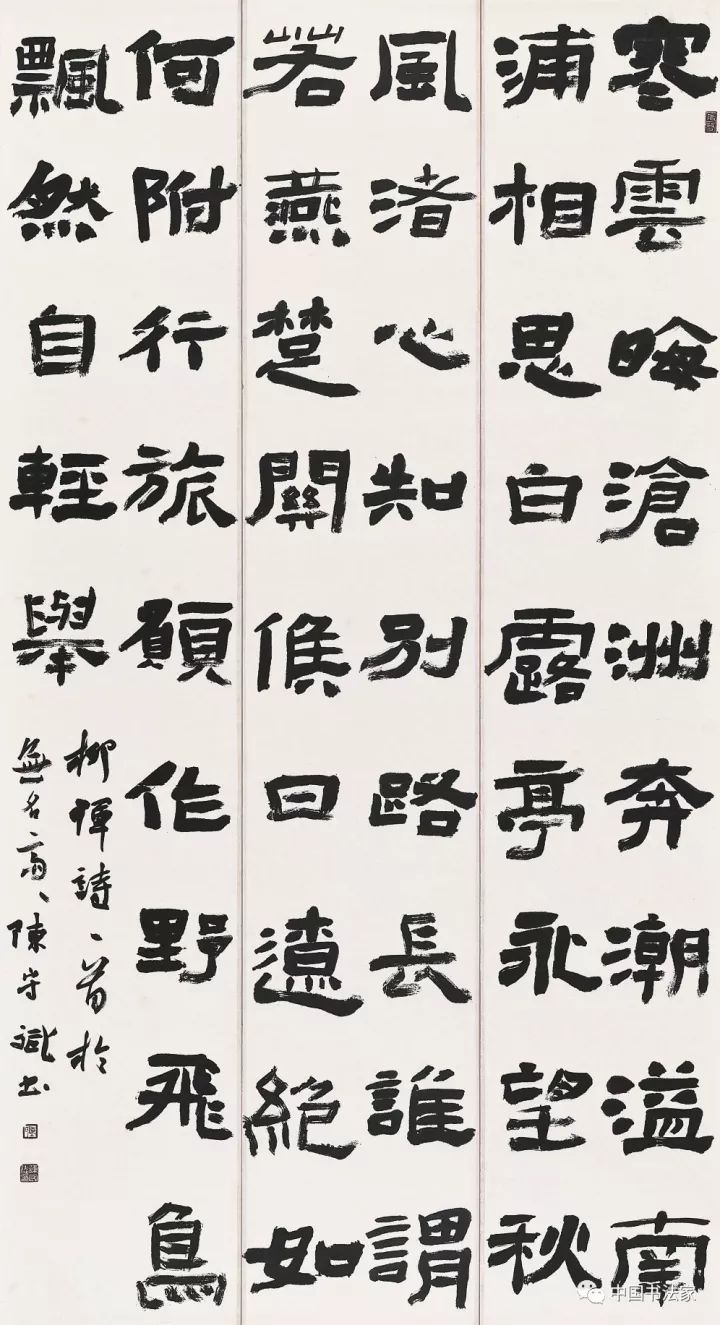 寒雲晦滄洲奔潮溢南
浦相思白露亭永望秋
風渚心知別路長誰謂
若燕楚關候日遼絕如
何附行旅願作野飛鳥
飄然自輕舉
柳惲詩一首於
無名齋陳守斌書
中国书法家